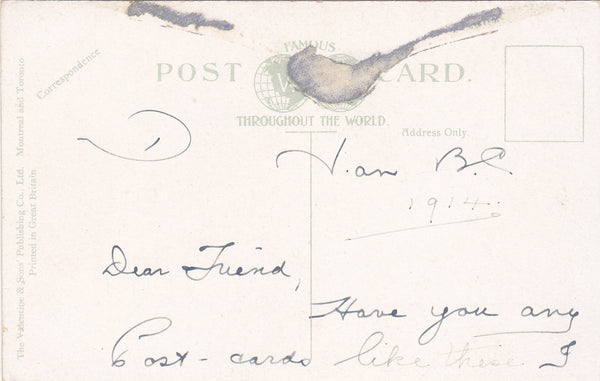 FAMOUS
POST CARD.
THROUGHOUT THE WORLD.
Correspondence
Address Only.
The Valentine & Sons' Publishing Co., Ltd. Montreal and Toronto
Printed in Great Britain
Van B.C.
1914.
Dear Friend,
Have you any
Post-cards like these I